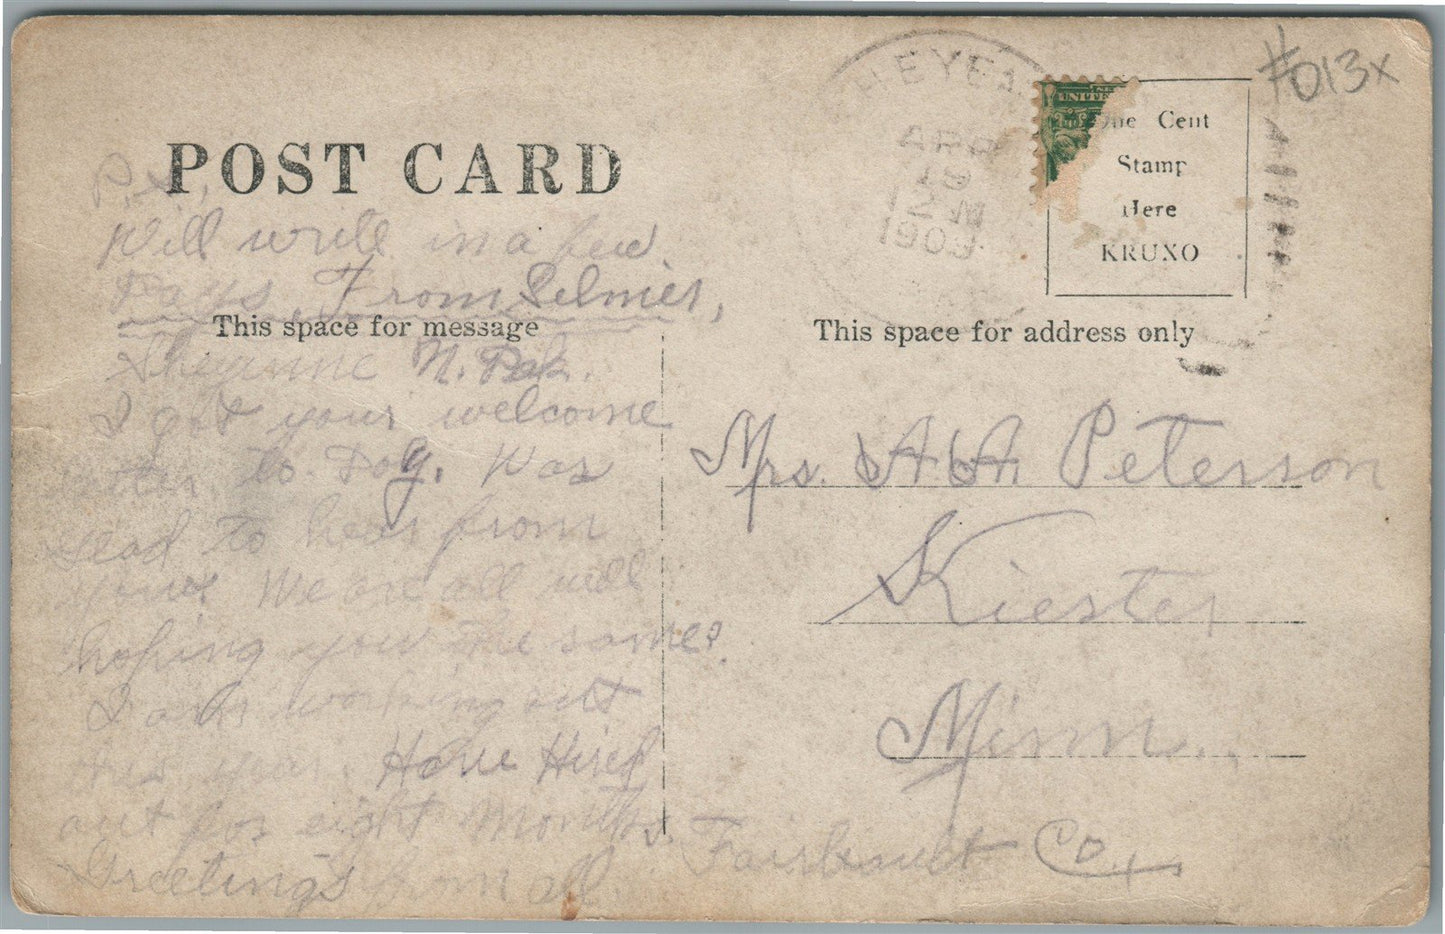 #013x
HEYEN
APR
12 M
1909
UNITE
One Cent
Stamp
Here
KRUXO
POST CARD
P.S.,
Will write in a few
Days, From Selmer,
This space for message
Sheyenne N. Dak.
I got your welcome
to Day. Was
to hear from
We are all well
hoping you the same.
I am working out
this year. Have Hired
out for eight Months.
Greetings from all.
This space for address only
Mrs. A. A. Peterson
Kiester
Minn.
Fairbault Co.